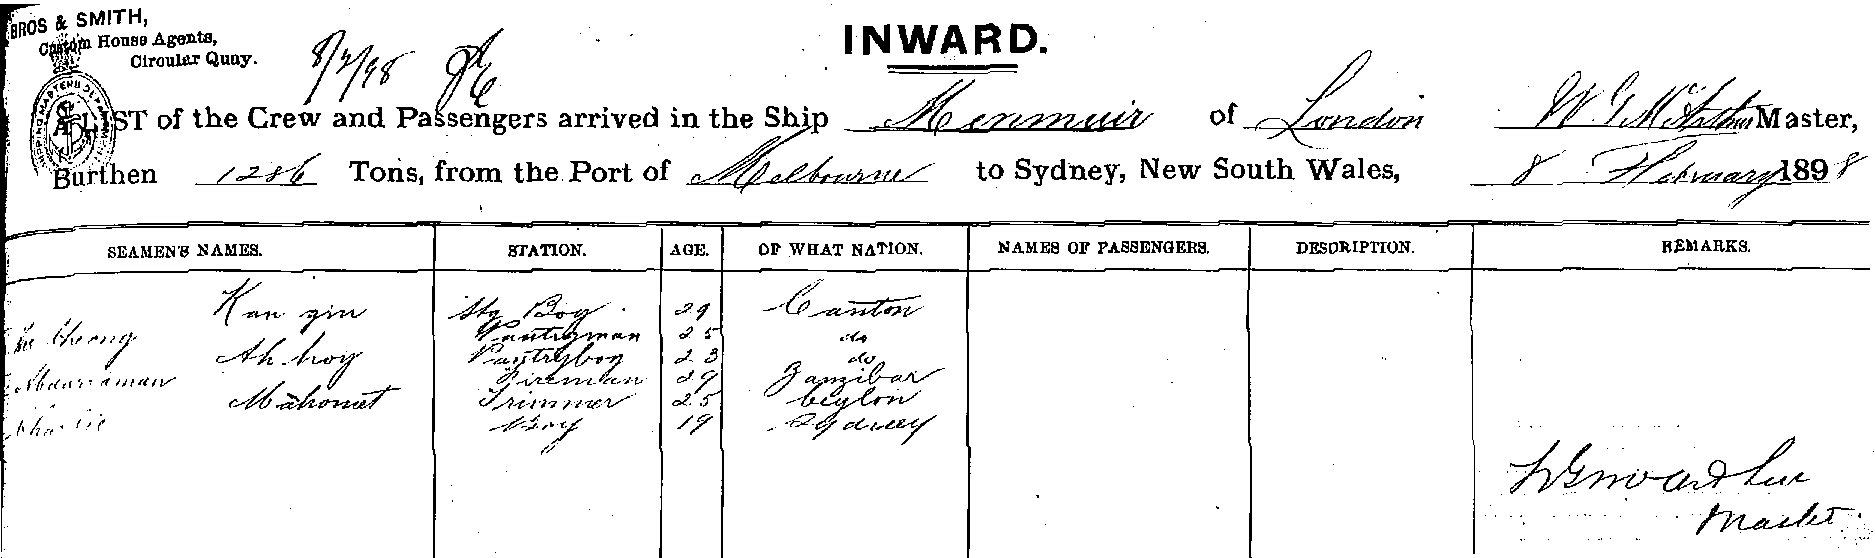 BROS & SMITH,
Custom House Agents,
Circular Quay.
8/2/98
INWARD.
LIST of the Crew and Passengers arrived in the Ship Menmuir of London W G McArthur Master,
Burthen 1286 Tons, from the Port of Melbourne to Sydney, New South Wales, 8 February 1898
SEAMEN'S NAMES. STATION. AGE. OF WHAT NATION. NAMES OF PASSENGERS. DESCRIPTION. REMARKS.
Kan gin Stg Boy 29 Canton
Cheong Pantryman 25 do
Ah hoy Pantryboy 23 do
Abdurraman Fireman 29 Zanzibar
Mahomet Trimmer 25 Ceylon
Charlie Boy 19 Sydney
WG McArthur
Master